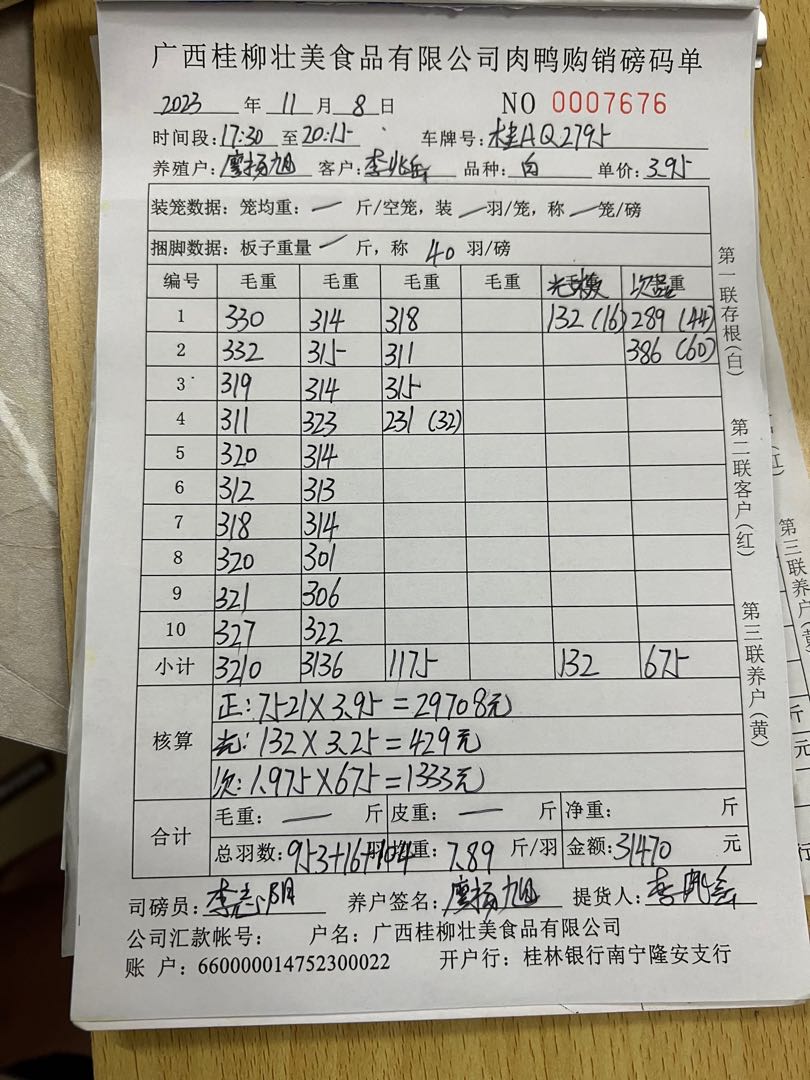 广西桂柳壮美食品有限公司肉鸭购销磅码单
2023 年 11 月 8 日 NO 0007676
时间段: 17:30 至 20:15 车牌号: 桂AQ2795
养殖户: 廖扬旭 客户: 李兆岳 品种: 白 单价: 3.95
装笼数据: 笼均重: — 斤/空笼, 装 — 羽/笼, 称 — 笼/磅
捆脚数据: 板子重量 — 斤, 称 40 羽/磅
编号 毛重 毛重 毛重 毛重 光 次品重
1 330 314 318 132 (16) 289 (44)
2 332 315 311 386 (60)
3 319 314 315
4 311 323 231 (32)
5 320 314
6 312 313
7 318 314
8 320 301
9 321 306
10 327 322
小计 3210 3136 1175 132 675
核算
正: 7521×3.95=29708元
光: 132×3.25=429元
次: 1.975×675=1333元
合计
毛重: — 斤 皮重: — 斤 净重: 斤
总羽数: 953+16+104 羽 均重: 7.89 斤/羽 金额: 31470 元
司磅员: 李志明 养户签名: 廖扬旭 提货人: 李兆岳
公司汇款帐号: 户名: 广西桂柳壮美食品有限公司
账 户: 660000014752300022 开户行: 桂林银行南宁隆安支行
第一联存根(白)
第二联客户(红)
第三联养户(黄)
第三联养户(黄
斤
元
行